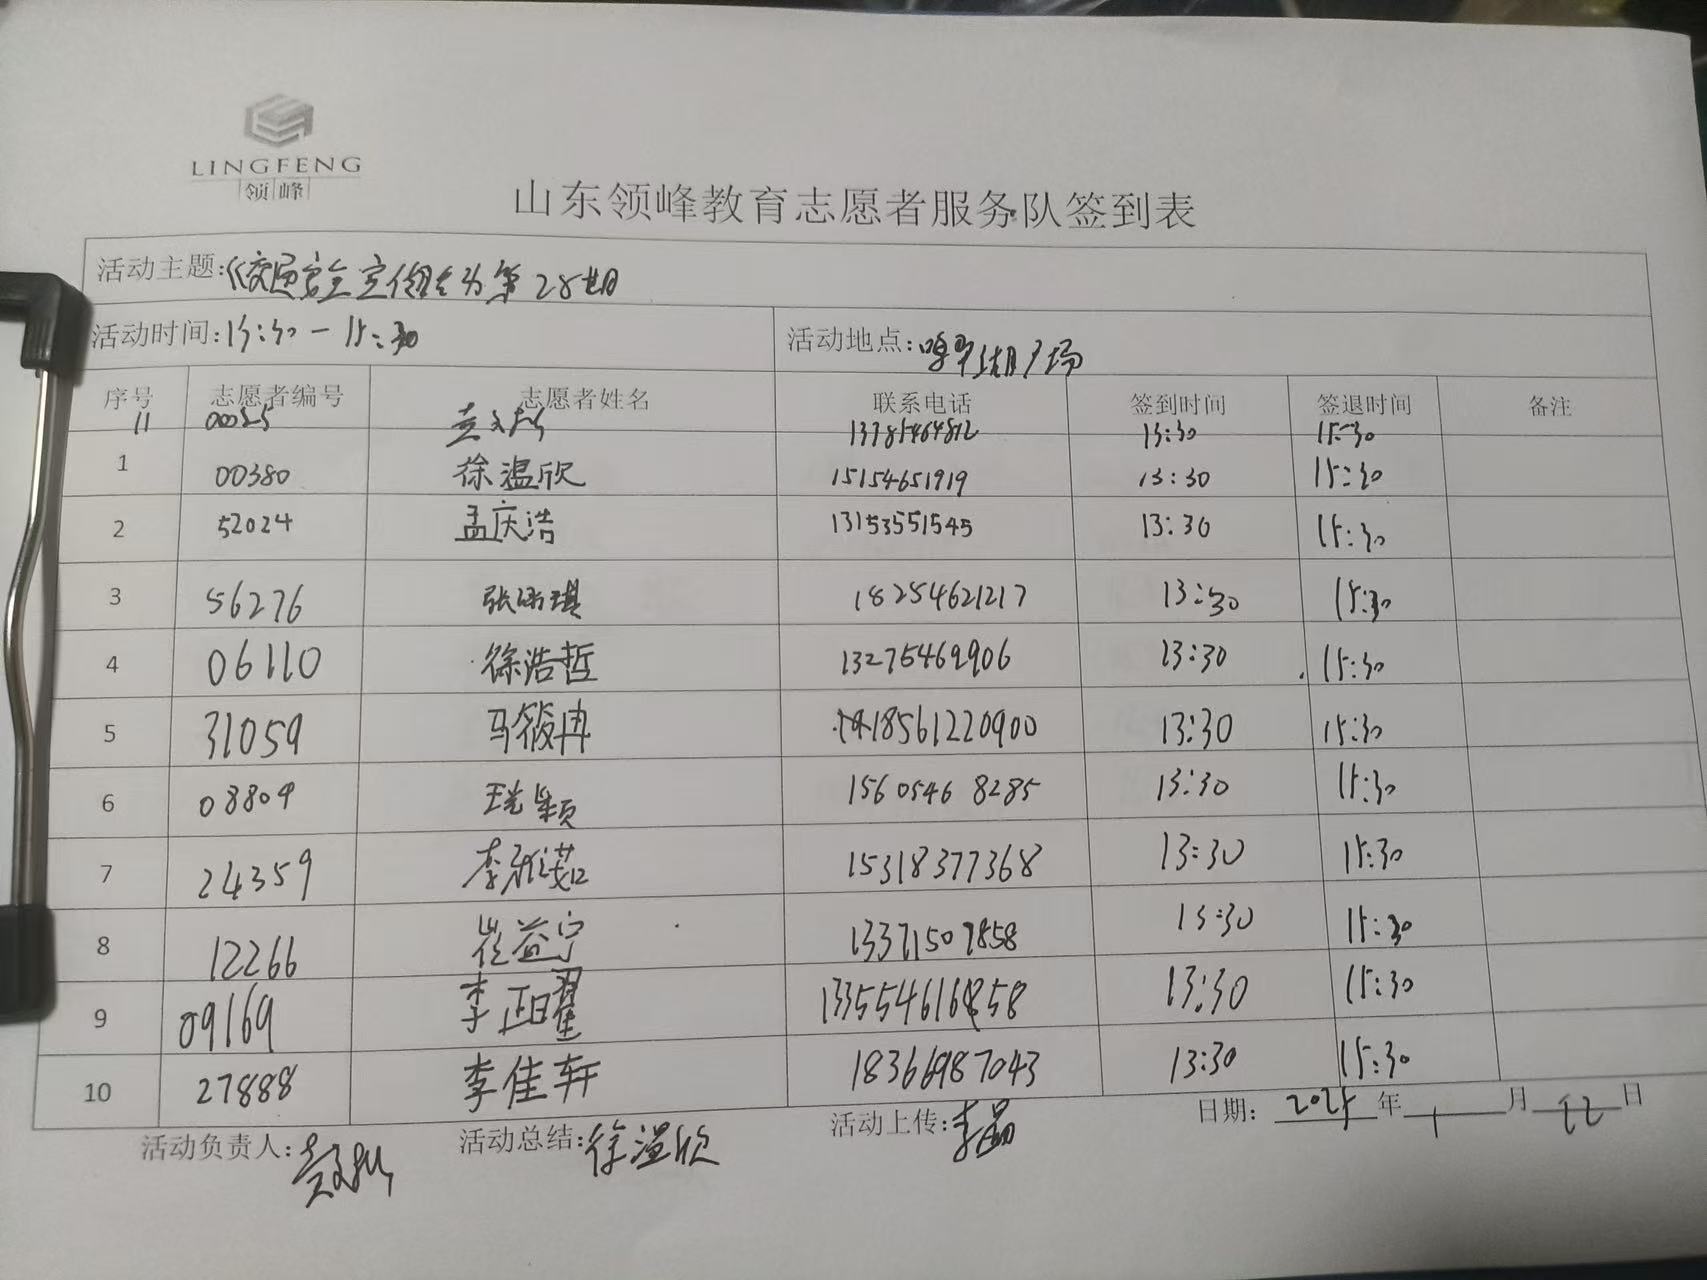 LINGFENG
领峰
山东领峰教育志愿者服务队签到表
活动主题:《交通安全宣传 第28期
活动时间:13:30-15:30 活动地点: 广场
序号 志愿者编号 志愿者姓名 联系电话 签到时间 签退时间 备注
11 13:30 15:30
1 00380 徐温欣 15154651919 13:30 15:30
2 52024 孟庆浩 13153551545 13:30 15:30
3 56276 张 琪 18254621217 13:30 15:30
4 06110 徐浩哲 13275469906 13:30 15:30
5 31059 马筱冉 18561220900 13:30 15:30
6 08809 颖 15605468285 13:30 15:30
7 24359 李雅茹 15318377368 13:30 15:30
8 12266 崔益宁 13371507858 13:30 15:30
9 09169 李正曜 13:30 15:30
10 27888 李佳轩 18366987043 13:30 15:30
活动负责人: 活动总结:徐温欣 活动上传:李 日期: 2025 年 1 月 日